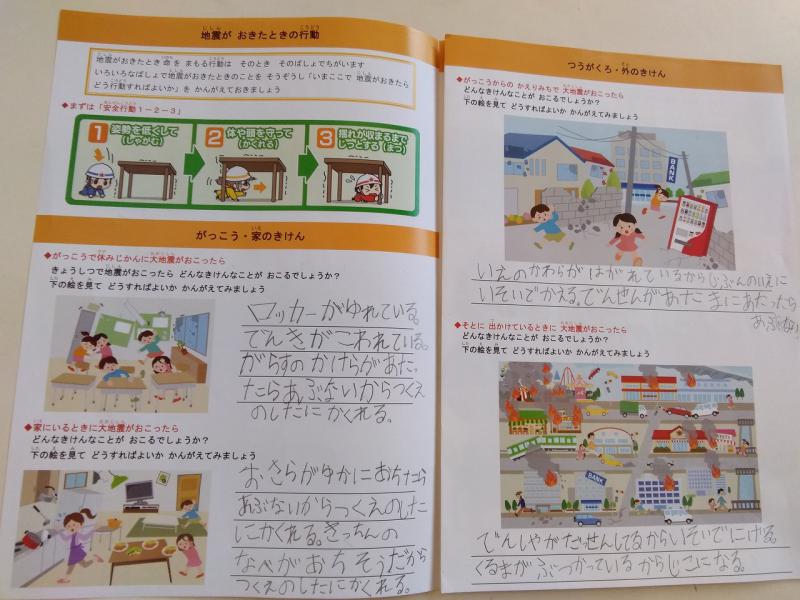 地震が おきたときの行動
地震がおきたとき 命を まもる行動は そのとき そのばしょでちがいます
いろいろなばしょで地震がおきたときのことを そうぞうし「いまここで 地震がおきたら
どう行動すればいいか」を かんがえておきましょう
◆まずは「安全行動1-2-3」
1 姿勢を低くして
(しゃがむ)
2 体や頭を守って
(かくれる)
3 揺れが収まるまで
じっとする(まつ)
がっこう・家のきけん
◆がっこうで休みじかんに大地震がおこったら
きょうしつで地震がおこったら どんなきけんなことが おこるでしょうか?
下の絵を見て どうすればよいか かんがえてみましょう
ロッカーがゆれている。
でんきがこわれている。
がらすのかけらがあた
たらあぶないからつくえ
のしたにかくれる。
◆家にいるときに大地震がおこったら
どんなきけんなことが おこるでしょうか?
下の絵を見て どうすればよいか かんがえてみましょう
おさらがゆかにおちたら
あぶないからつくえのした
にかくれる。きっちんの
なべがおちそうだから
つくえのしたにかくれる。
つうがくろ・外のきけん
◆がっこうからの かえりみちで 大地震がおこったら
どんなきけんなことが おこるでしょうか?
下の絵を見て どうすればよいか かんがえてみましょう
BANK
いえのかわらがはがれているからじぶんのいえに
いそいでかえる。でんせんがあたまにあたったら
あぶない
◆そとに 出かけているときに 大地震がおこったら
どんなきけんなことが おこるでしょうか?
下の絵を見て どうすればよいか かんがえてみましょう
BANK
でんしゃがだっせんしてるからいそいでにげる。
くるまがぶつかっているからじこになる。